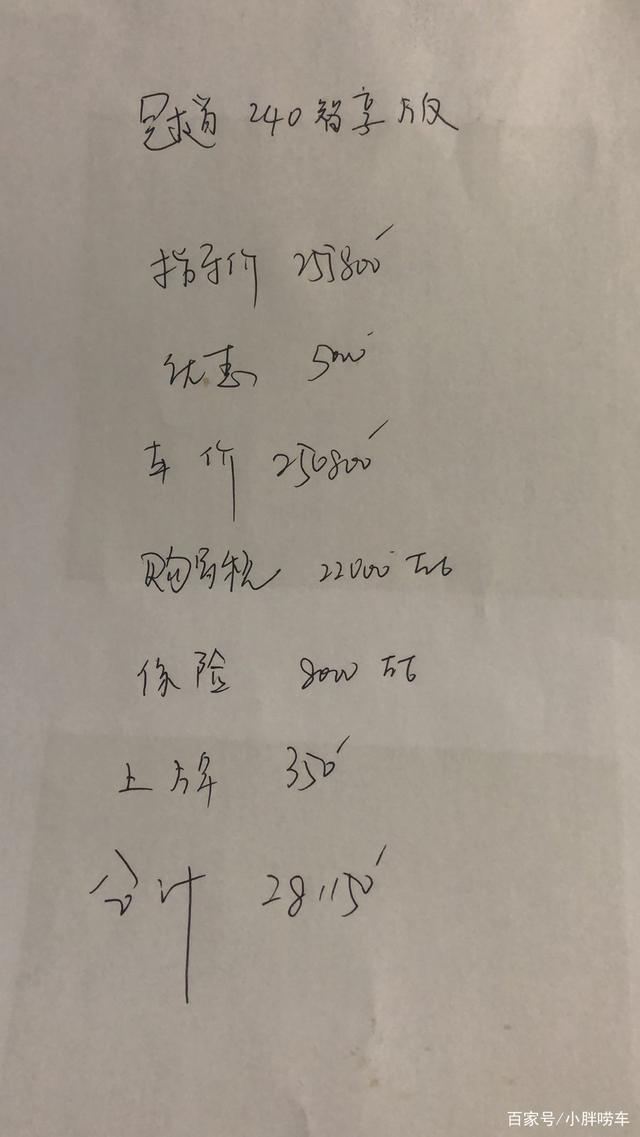 冠道 240智享版
指导价 255800
优惠 5000
车价 250800
购置税 22000左右
保险 8000左右
上牌 350
合计 281150
百家号/小胖唠车